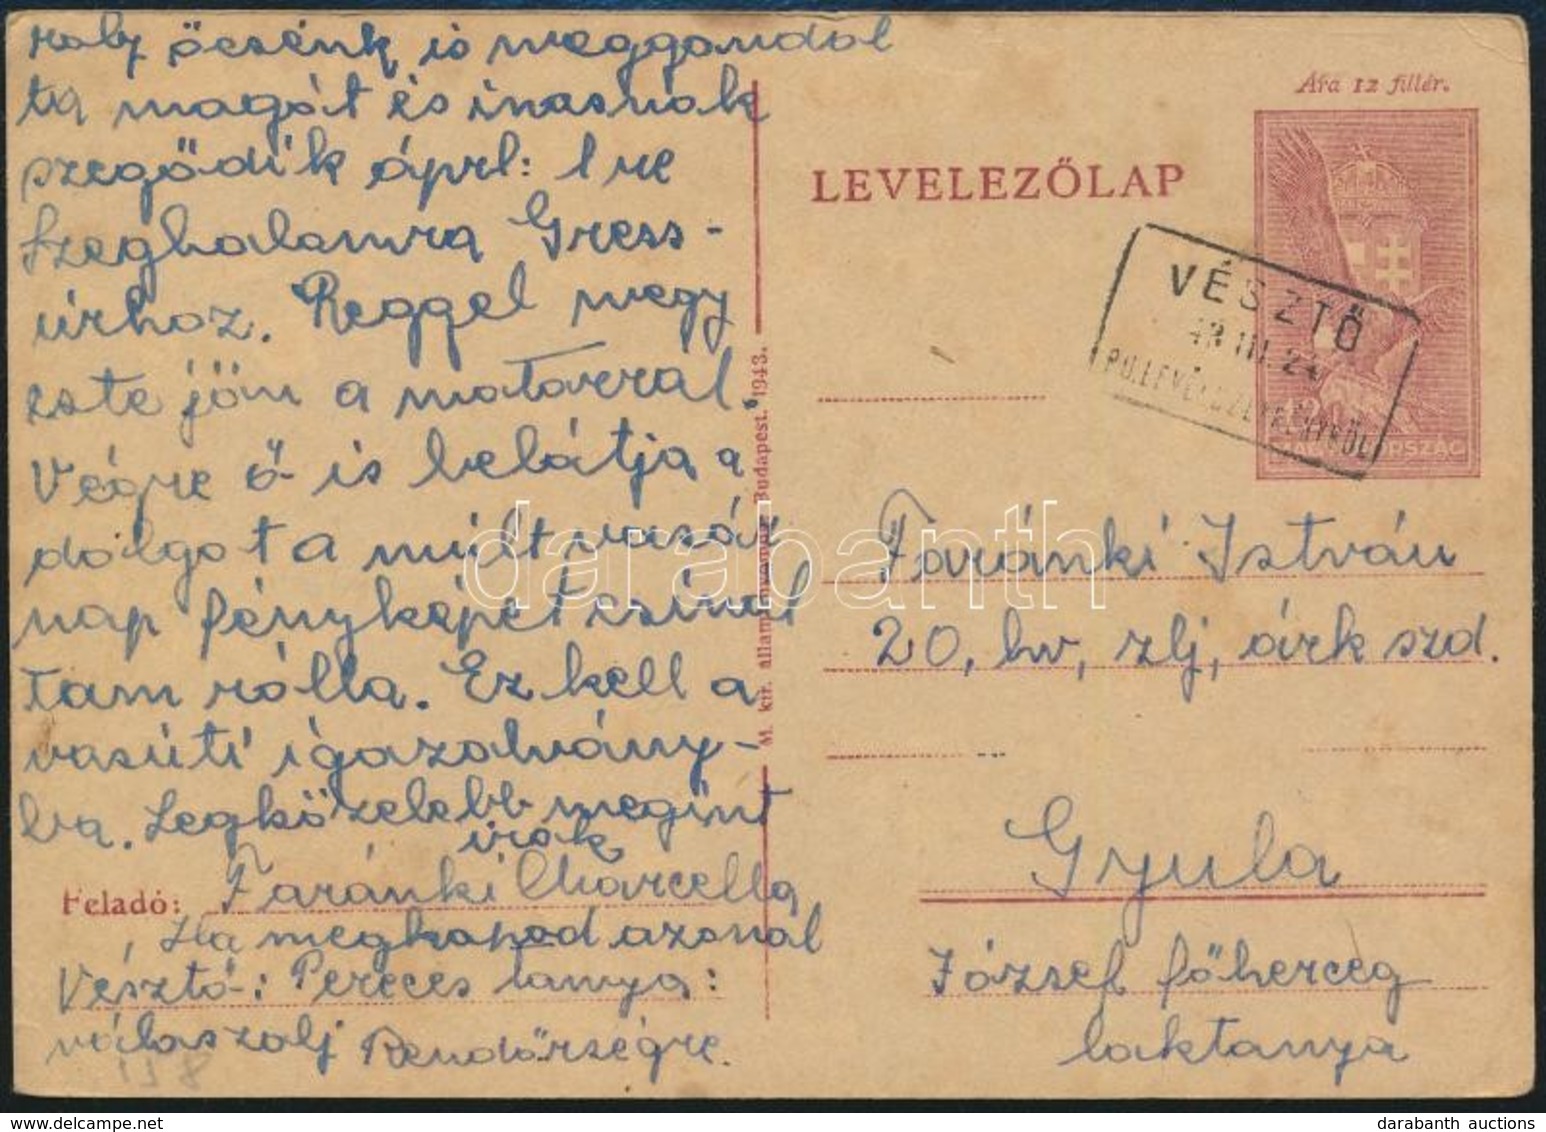 öcsénk is meggondol
ta magát és inasnak
szegődik ápril: 1 re
Szeghalomra Gress-
úrhoz. Reggel megy
este jön a motorral.
Végre ő is belátja a
dolgot a múlt vasár
nap fényképet csinál
tam róla. Ez kell a
vasúti igazolvány-
ba. Legközelebb megint
irok
Feladó: Faránki Marcella
Ha megkapod azonnal
Vésztő: Pereces tanya:
válaszolj Rendőrségre.
M. kir. államnyomda, Budapest. 1943.
Ára 12 fillér.
LEVELEZŐLAP
VÉSZTŐ
43 III. 24
PU. LEVÉLSZEKRÉNYBŐL
Faránki István
20, hv, zlj, árk szd.
Gyula
József főherceg
laktanya
darabanth
darabanth auctions